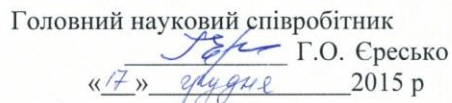 Головний науковий співробітник
Г.О. Єресько
«17» грудня 2015 р